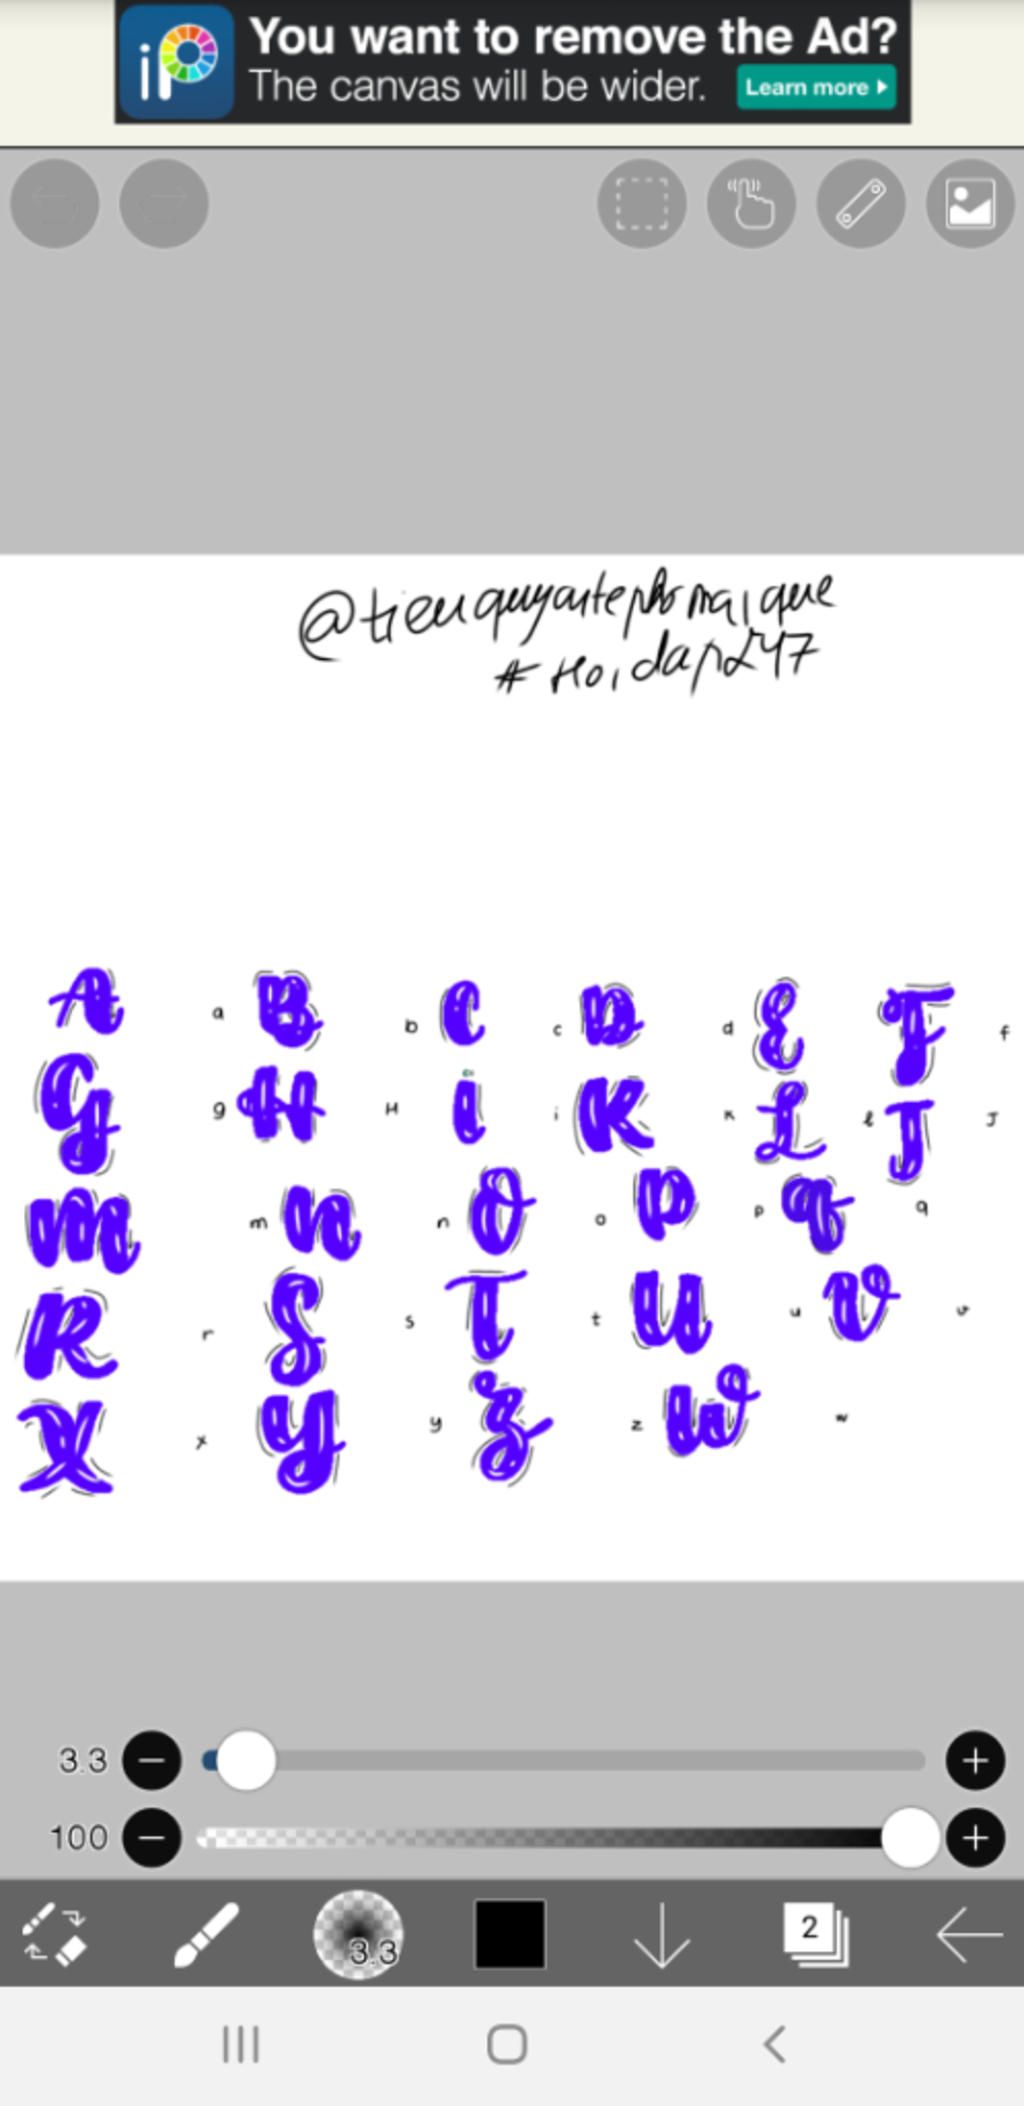 You want to remove the Ad?
The canvas will be wider. Learn more
iP
#Hoidap247
A a B b C c D d E F f
G g H H i i K K L l J J
m m n n O o P p q q
R r S s T t U u V v
X x y y z z W w
3.3
100
3.3 2